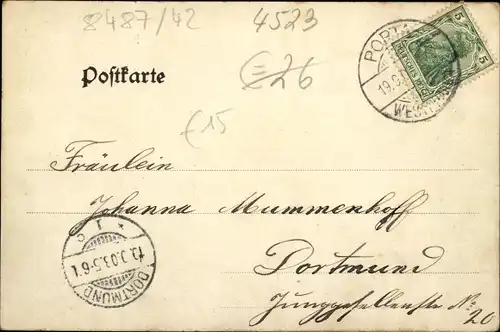 8487/42
4523
€26
€15
Postkarte
5 5
PORTA
19.9.
WESTF
Fräulein
Johanna Mummenhoff
Dortmund
Junggesellenstr. No. 20
DORTMUND
* 1 c
.03.5-6